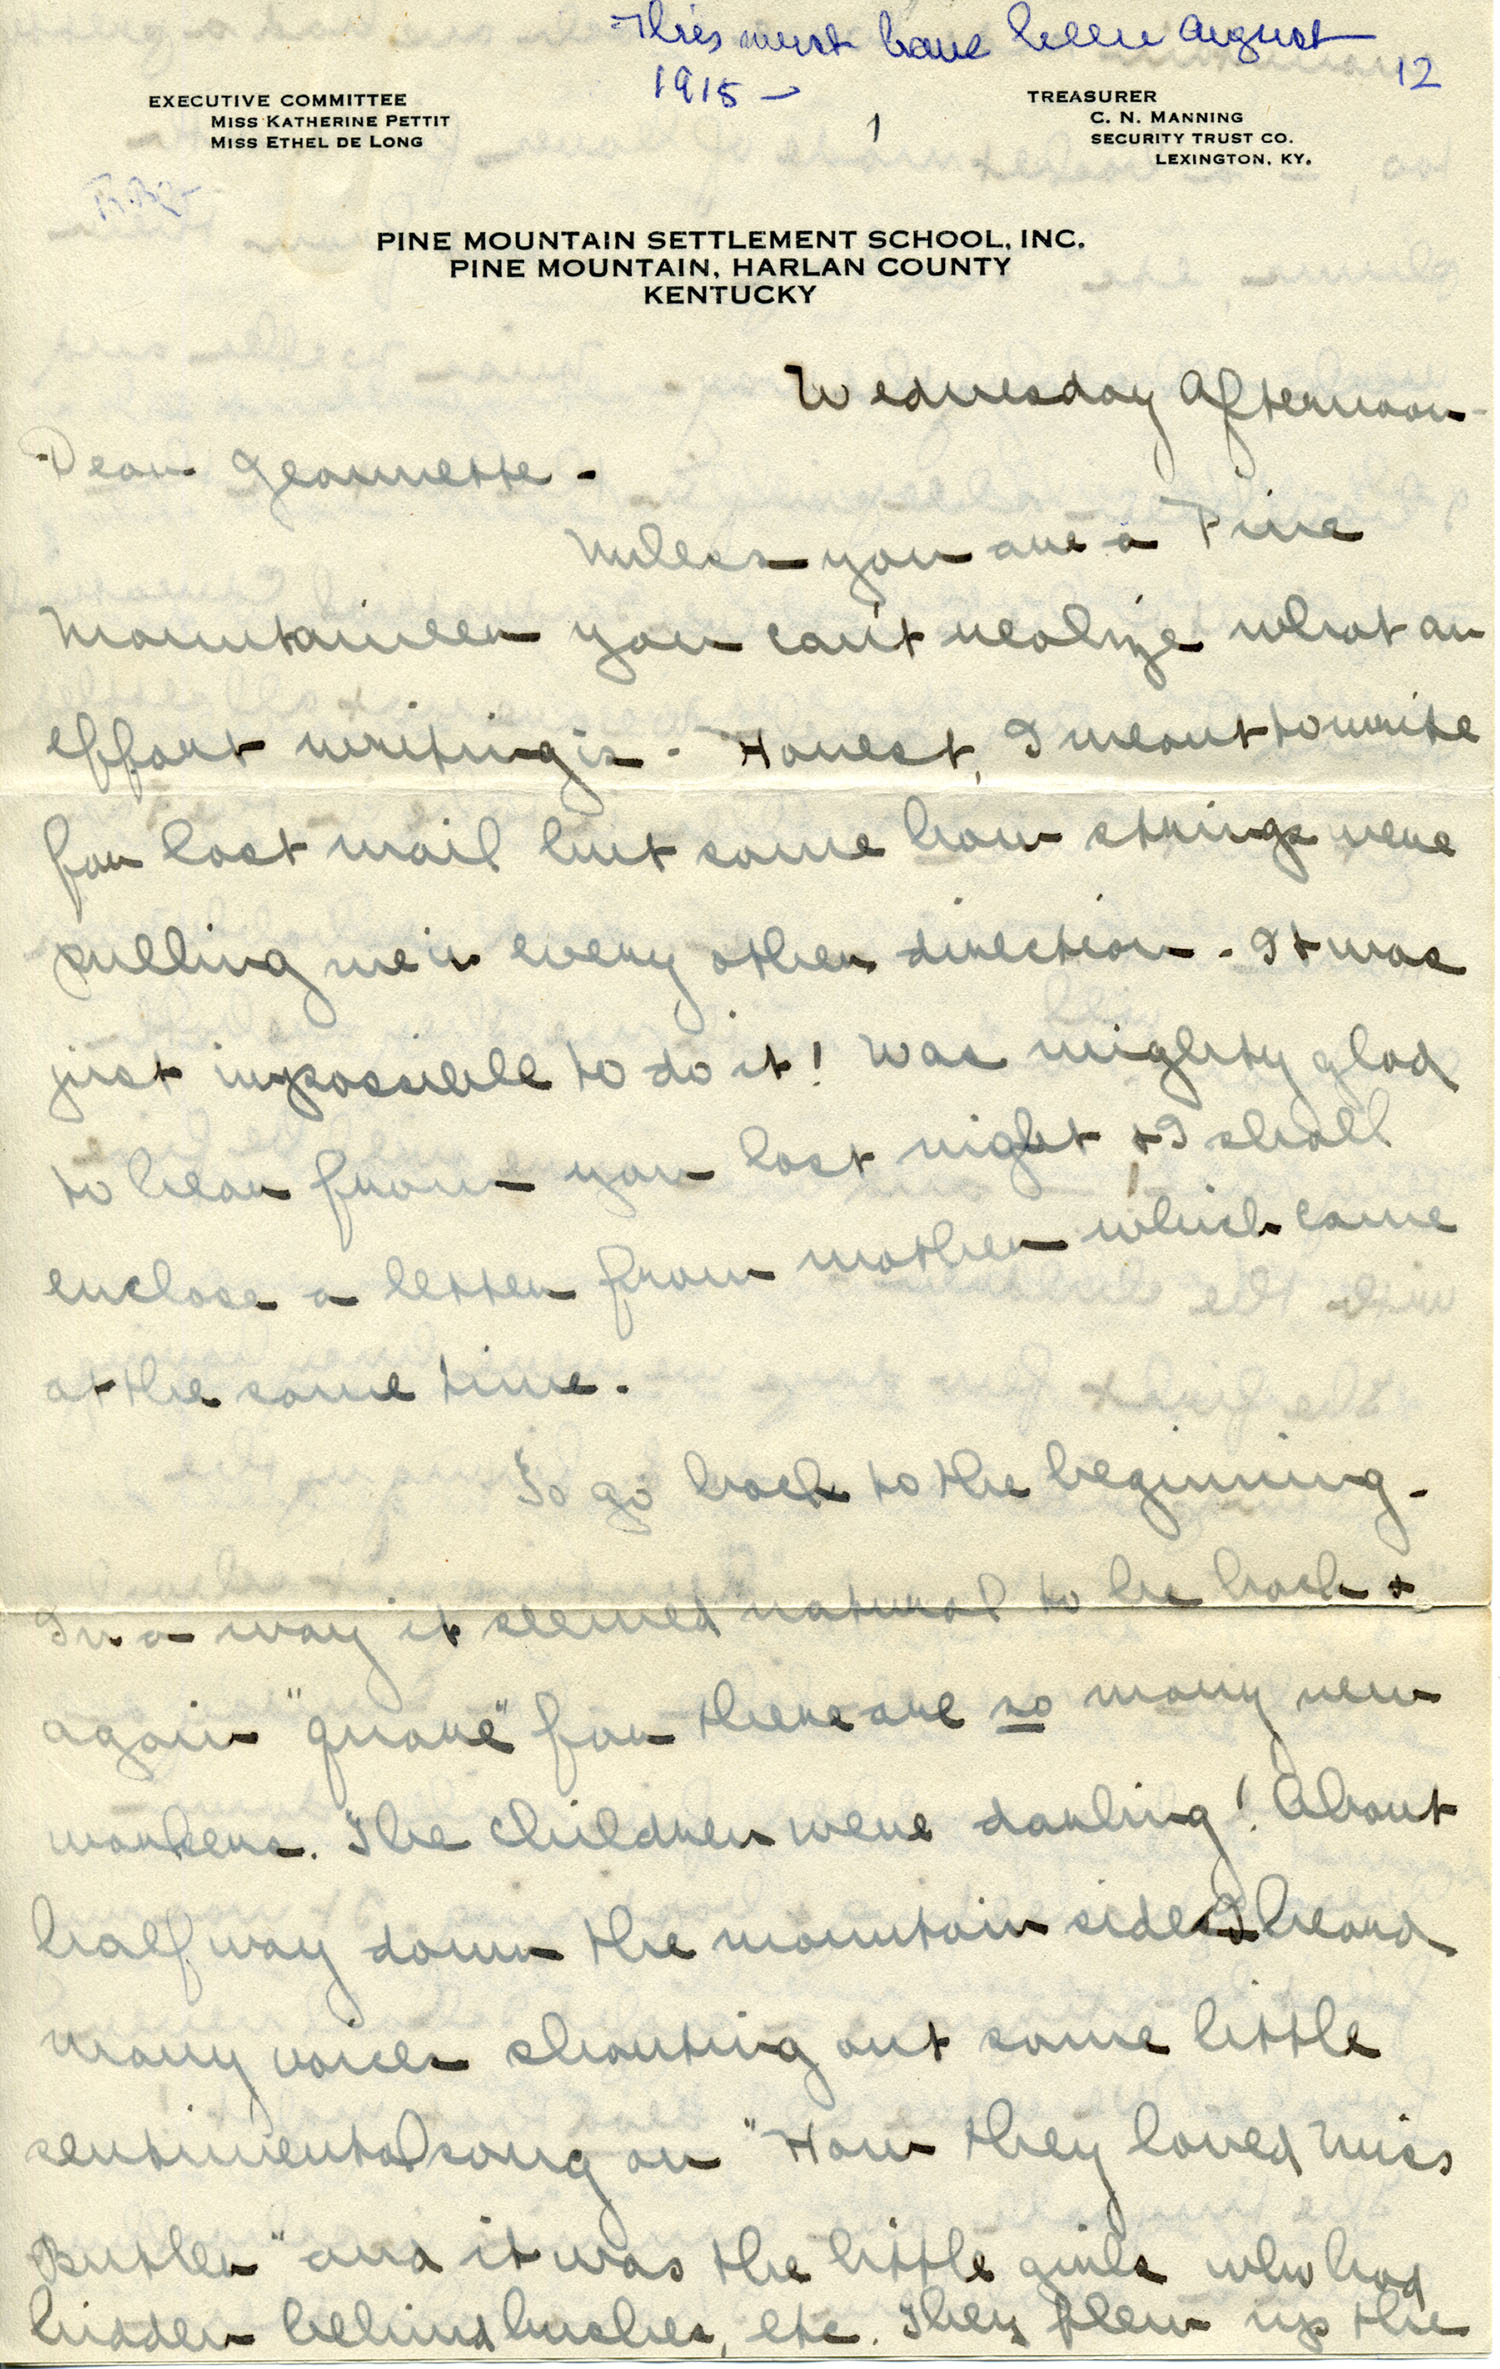 This must have been August
1915 -
12
EXECUTIVE COMMITTEE
MISS KATHERINE PETTIT
MISS ETHEL DE LONG
1
TREASURER
C. N. MANNING
SECURITY TRUST CO.
LEXINGTON, KY.
PINE MOUNTAIN SETTLEMENT SCHOOL, INC.
PINE MOUNTAIN, HARLAN COUNTY
KENTUCKY
Wednesday Afternoon -
Dear Jeannette -
Unless you are a Pine
Mountaineer you can't realize what an
effort writing is - Honest, I meant to write
for last mail but some how strings were
pulling me in every other direction - It was
just impossible to do it! Was mighty glad
to hear from you last night & I shall
enclose a letter from mother which came
at the same time.
To go back to the beginning -
In a way it seemed natural to be back &
again "quare" for there are so many new
workers. The children were darling! About
half way down the mountain side I heard
many voices shouting out some little
sentimental song on "How they loved Miss
Butler" and it was the little girls who had
hidden behind bushes, etc. They flew up the